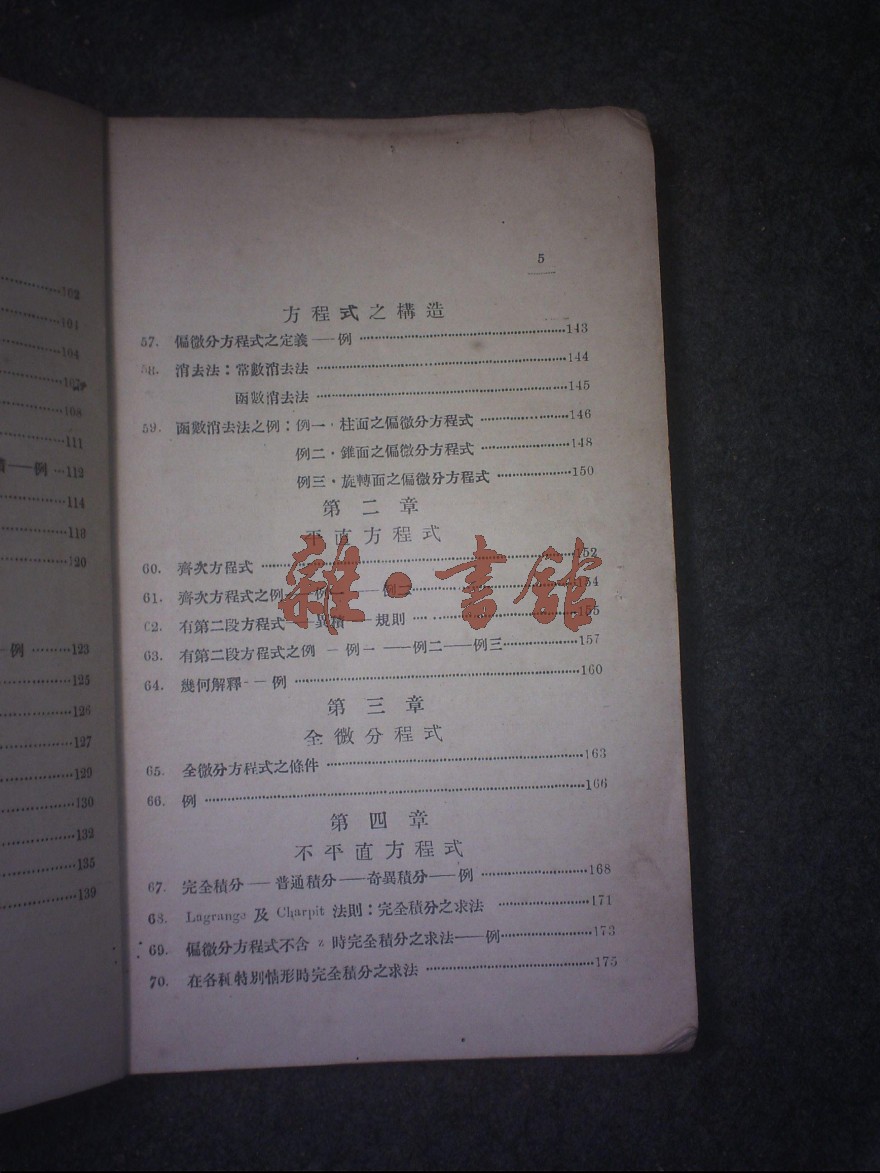 102
104
104
107
108
111
例 …112
114
118
120
例 ………123
125
126
127
129
130
132
135
139
5
方程式之構造
57. 偏微分方程式之定義——例 ……143
58. 消去法：常數消去法 ……144
函數消去法 ……145
59. 函數消去法之例：例一・柱面之偏微分方程式 ……146
例二・錐面之偏微分方程式 ……148
例三・旋轉面之偏微分方程式 ……150
第二章
平直方程式
60. 齊次方程式 ……152
61. 齊次方程式之例——例一——例二……154
62. 有第二段方程式——異積——規則 ……155
63. 有第二段方程式之例 — 例一 ——例二——例三……157
64. 幾何解釋--例 ……160
第三章
全微分程式
65. 全微分方程式之條件 ……163
66. 例 ……166
第四章
不平直方程式
67. 完全積分——普通積分——奇異積分——例 ……168
68. Lagrange 及 Charpit 法則：完全積分之求法 ……171
69. 偏微分方程式不含 z 時完全積分之求法——例……173
70. 在各種特別情形時完全積分之求法 ……175
雜・書館